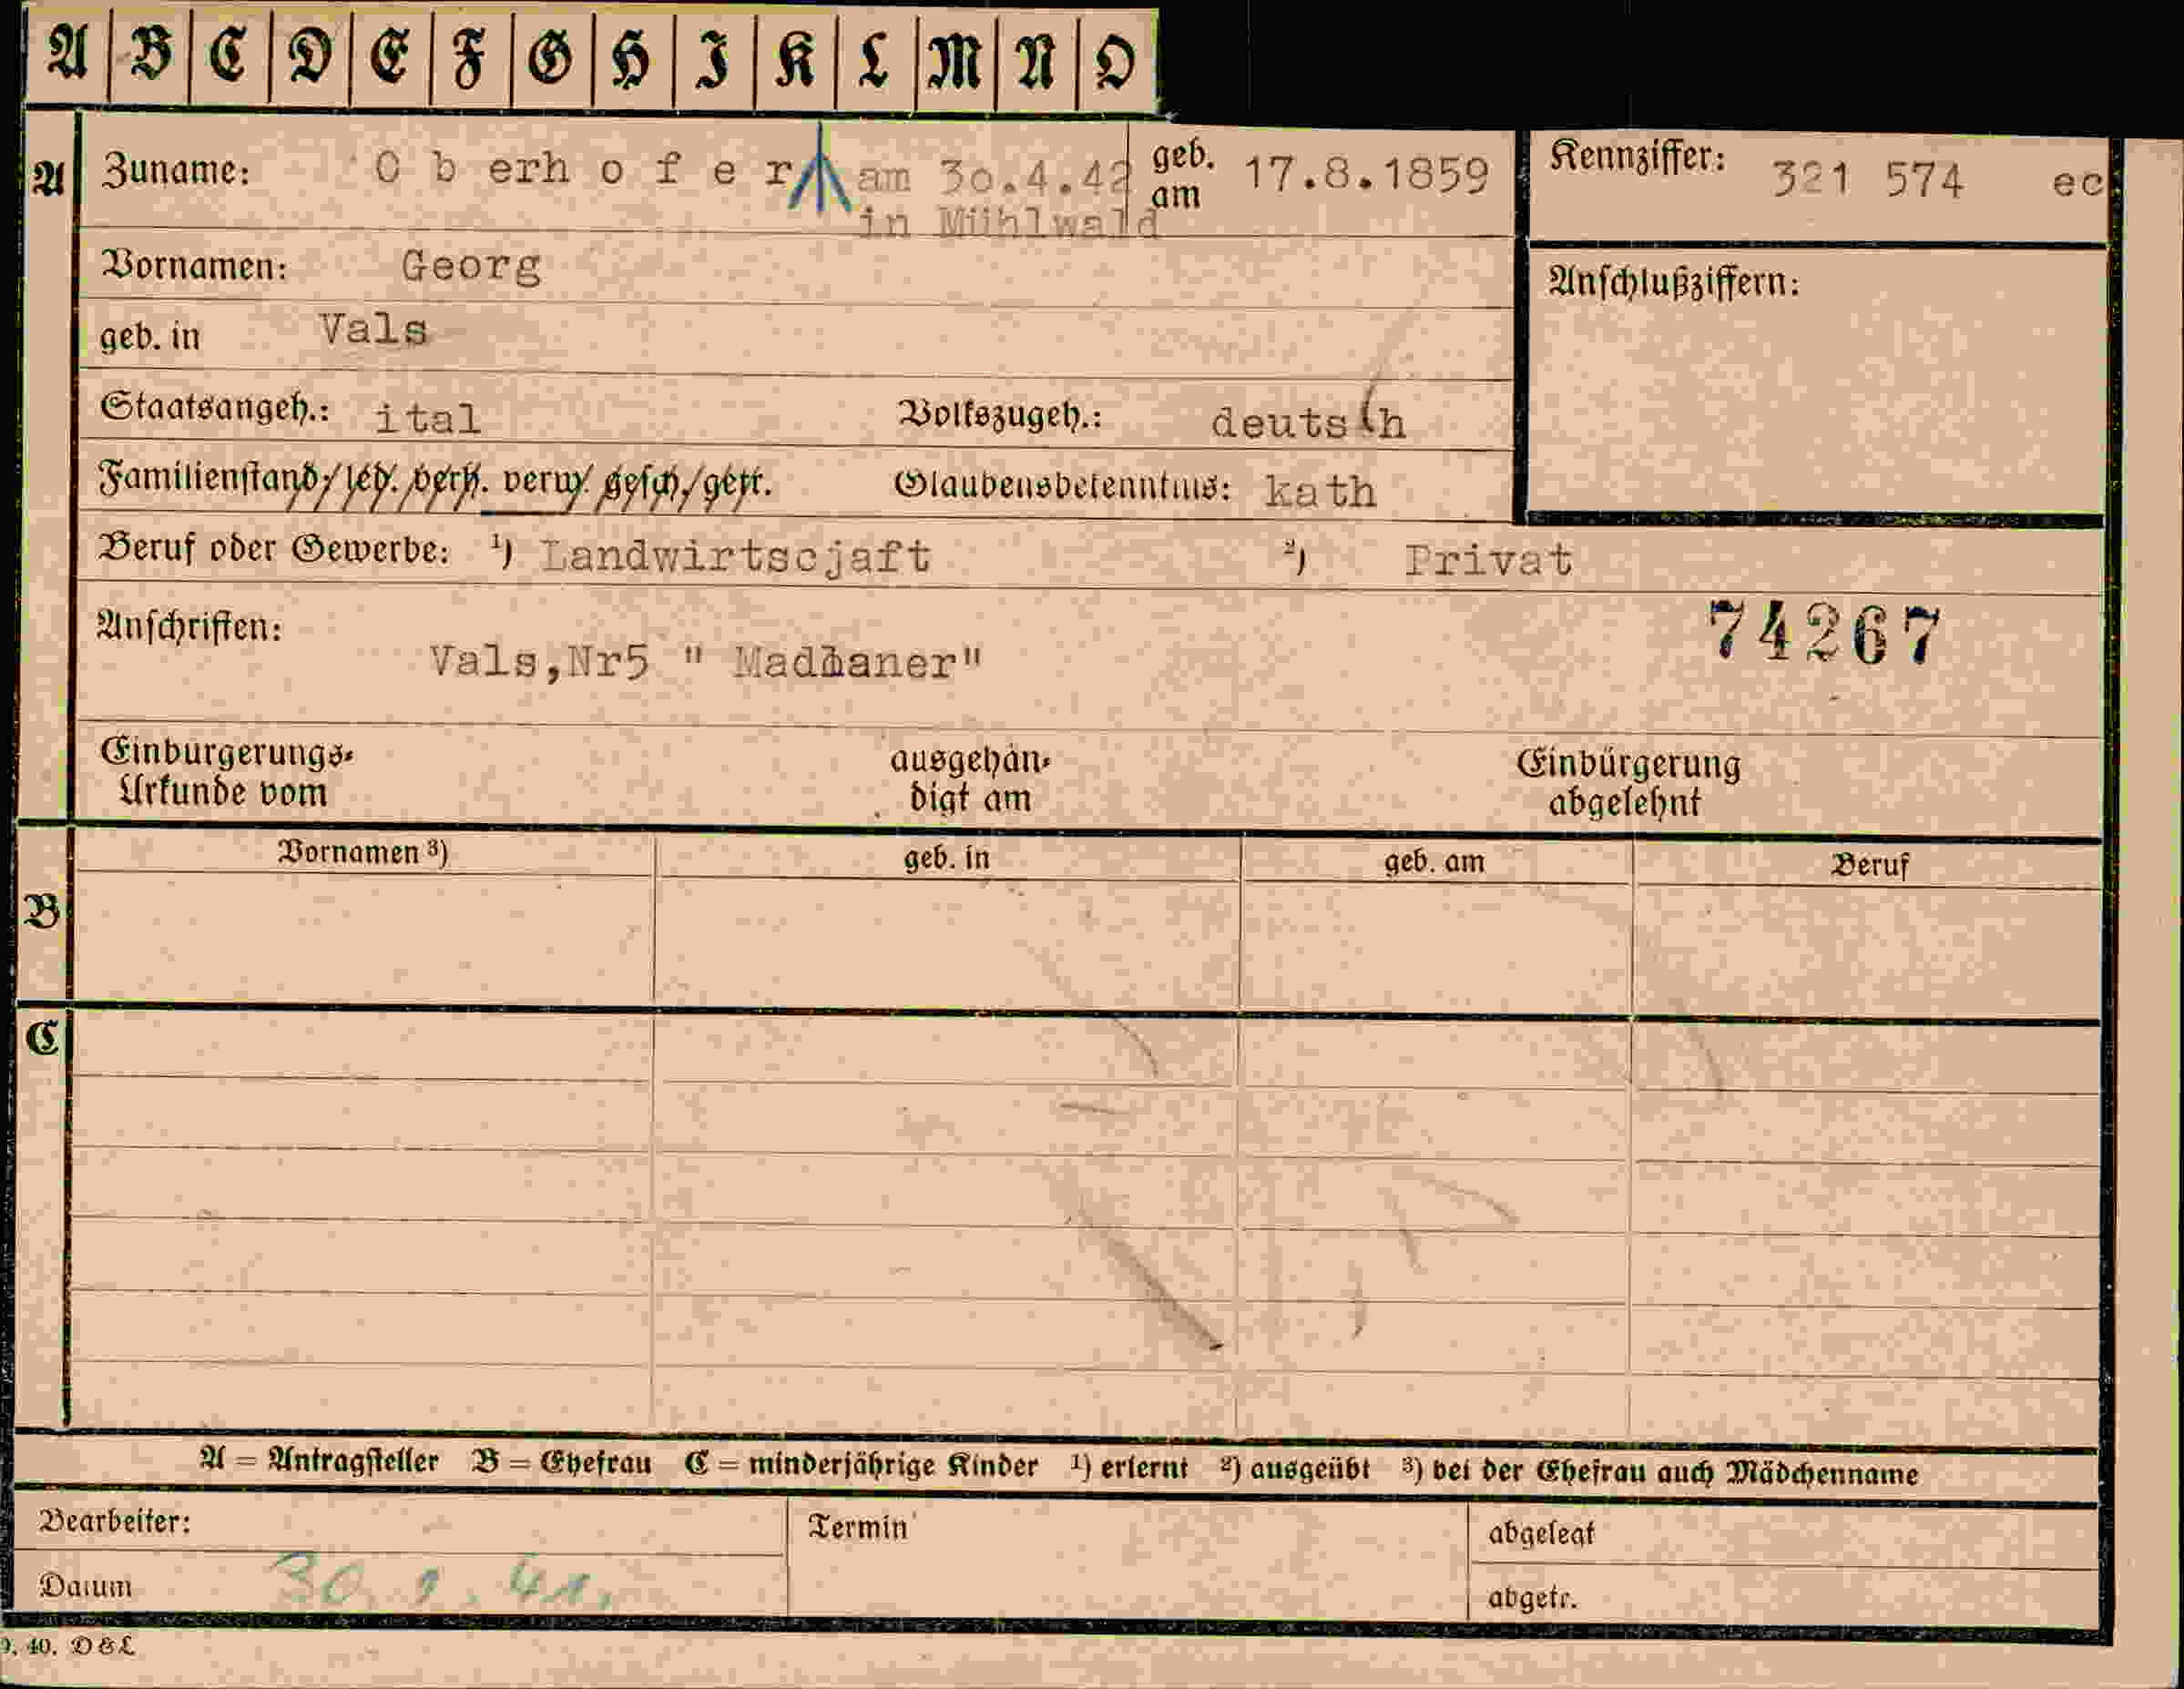 A B C D E F G H I K L M N O
A Zuname: O b erh o f e r am 30.4.42 geb. am 17.8.1859 Kennziffer: 321 574 ec
in Mühlwald
Vornamen: Georg
Anschlußziffern:
geb. in Vals
Staatsangeh.: ital Volkszugeh.: deutsch
Familienstand: led. verh. verw. gesch. getr. Glaubensbekenntnis: kath
Beruf oder Gewerbe: ¹) Landwirtscjaft ²) Privat
74267
Anschriften:
Vals,Nr5 " Madhaner"
Einbürgerungs- ausgehän- Einbürgerung
Urkunde vom digt am abgelehnt
Vornamen ³) geb. in geb. am Beruf
B
C
A = Antragsteller B = Ehefrau C = minderjährige Kinder ¹) erlernt ²) ausgeübt ³) bei der Ehefrau auch Mädchenname
Bearbeiter: Termin abgelegt
Datum 30. 1. 41. abgetr.
9. 40. D&L